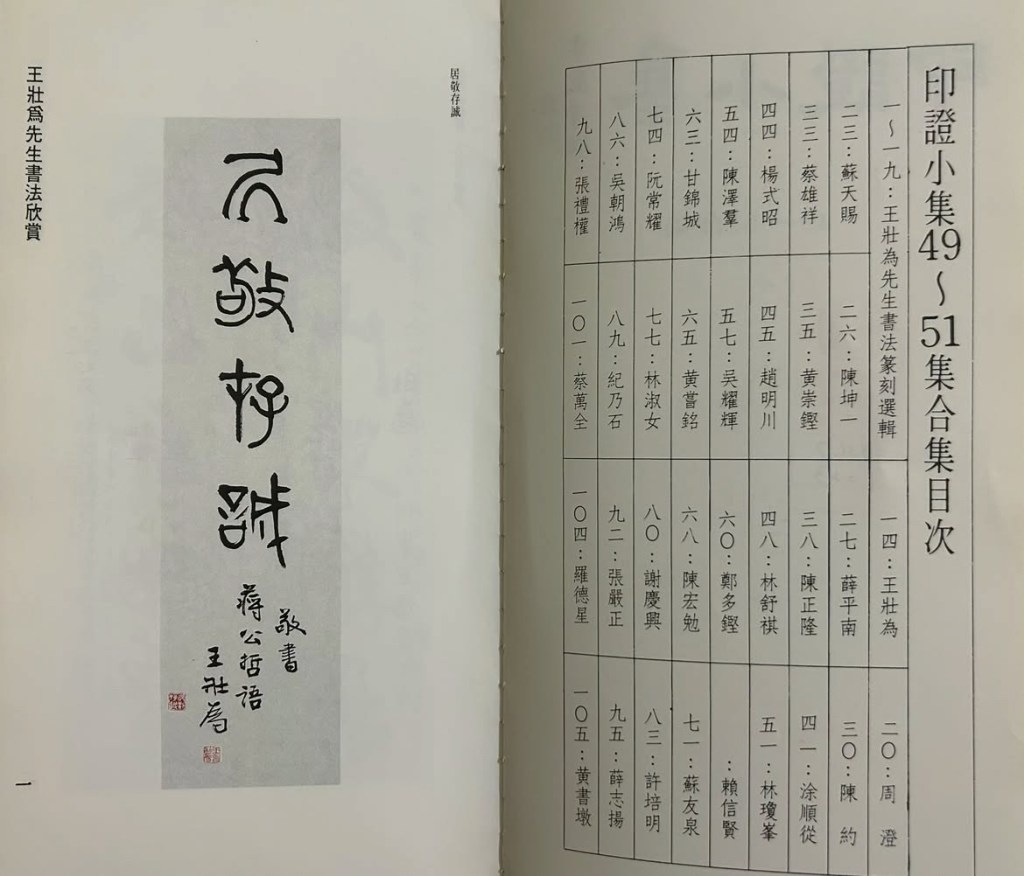 印證小集49～51集合集目次
一～一九：王壯為先生書法篆刻選輯
一四：王壯為
二〇：周 澄
二三：蘇天賜
二六：陳坤一
二七：薛平南
三〇：陳 約
三三：蔡雄祥
三五：黃崇鏗
三八：陳正隆
四一：涂順從
四四：楊式昭
四五：趙明川
四八：林舒祺
五一：林瓊峯
五四：陳澤羣
五七：吳耀輝
六〇：鄭多鏗
：賴信賢
六三：甘錦城
六五：黃嘗銘
六八：陳宏勉
七一：蘇友泉
七四：阮常耀
七七：林淑女
八〇：謝慶興
八三：許培明
八六：吳朝鴻
八九：紀乃石
九二：張嚴正
九五：薛志揚
九八：張禮權
一〇一：蔡萬全
一〇四：羅德星
一〇五：黃書墩
居敬存誠
居敬存誠
敬書
蔣公哲語
王壯為
王壯為先生書法欣賞
一